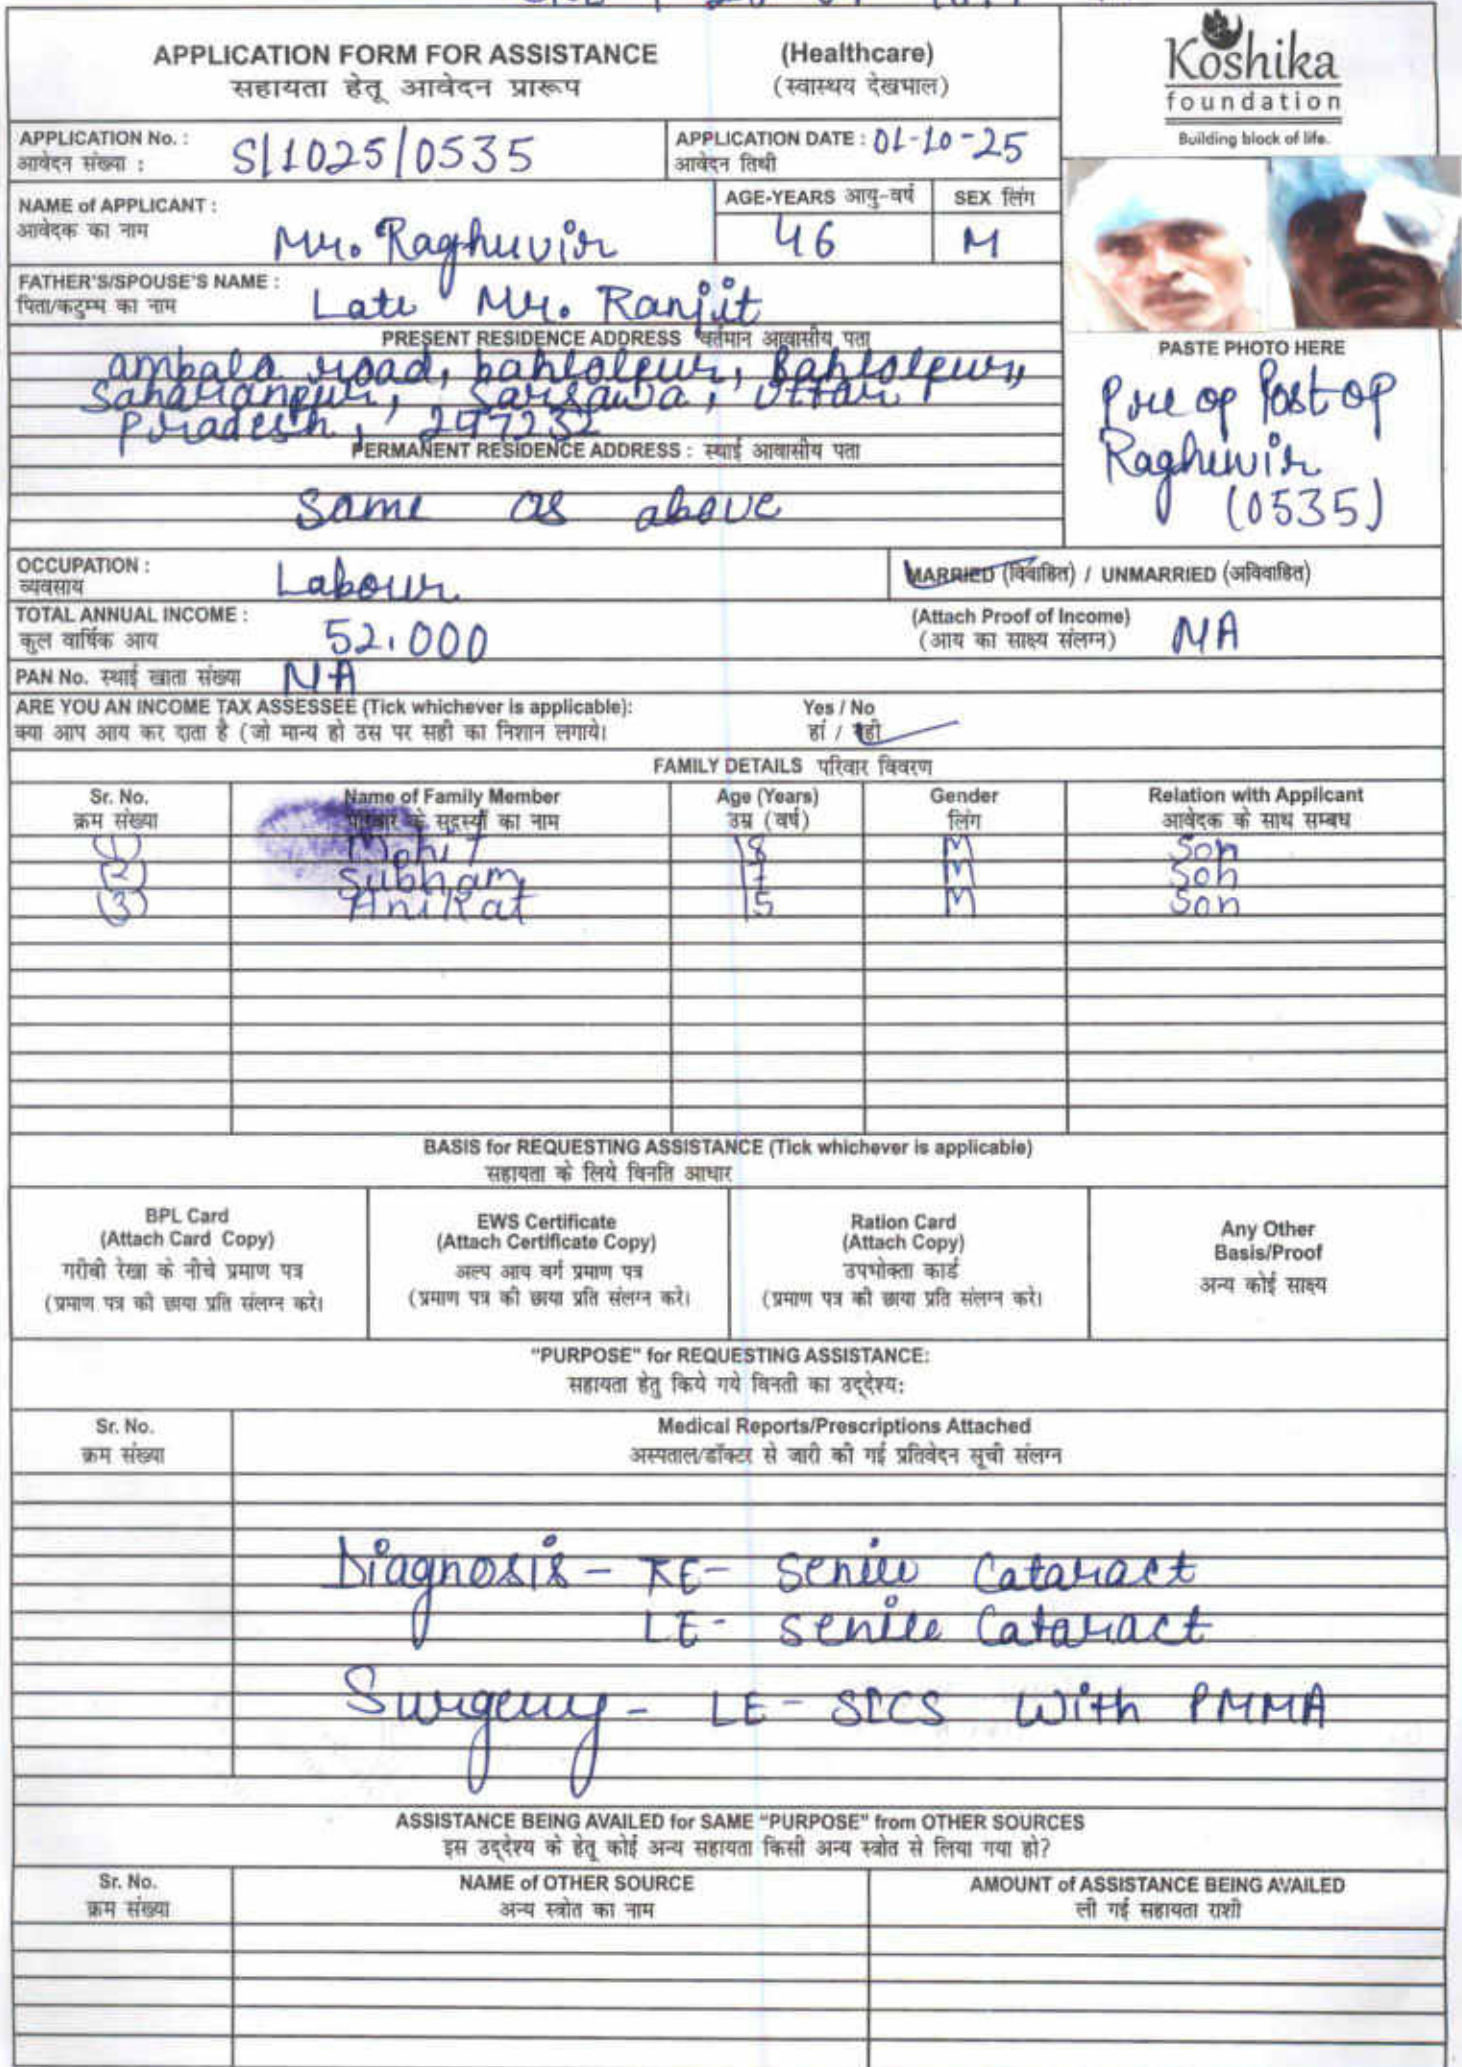 APPLICATION FORM FOR ASSISTANCE (Healthcare)
सहायता हेतू आवेदन प्रारूप (स्वास्थय देखभाल)
Koshika
foundation
Building block of life.
APPLICATION No. : S/1025/0535 APPLICATION DATE : 01-10-25
आवेदन संख्या : आवेदन तिथी
NAME of APPLICANT : AGE-YEARS आयु-वर्ष SEX लिंग
आवेदक का नाम Mr. Raghuvir 46 M
FATHER'S/SPOUSE'S NAME :
पिता/कटुम्ब का नाम Late Mr. Ranjit
PRESENT RESIDENCE ADDRESS वर्तमान आवासीय पता
ambala road, bahlolpur, Bahlolpur,
Saharanpur, Sarsawa, Uttar
Pradesh, 247232
PERMANENT RESIDENCE ADDRESS : स्थाई आवासीय पता
Same as above
PASTE PHOTO HERE
Pre op Post op
Raghuvir
(0535)
OCCUPATION : Labour MARRIED (विवाहित) / UNMARRIED (अविवाहित)
व्यवसाय
TOTAL ANNUAL INCOME : 52,000 (Attach Proof of Income) NA
कुल वार्षिक आय (आय का साक्ष्य संलग्न)
PAN No. स्थाई खाता संख्या NA
ARE YOU AN INCOME TAX ASSESSEE (Tick whichever is applicable): Yes / No
क्या आप आय कर दाता है (जो मान्य हो उस पर सही का निशान लगाये। हां / नही
FAMILY DETAILS परिवार विवरण
Sr. No. Name of Family Member Age (Years) Gender Relation with Applicant
क्रम संख्या परिवार के सदस्यों का नाम उम्र (वर्ष) लिंग आवेदक के साथ सम्बध
(1) Mohit 18 M Son
(2) Subham 17 M Son
(3) AniKat 15 M Son
BASIS for REQUESTING ASSISTANCE (Tick whichever is applicable)
सहायता के लिये विनति आधार
BPL Card
(Attach Card Copy)
गरीबी रेखा के नीचे प्रमाण पत्र
(प्रमाण पत्र की छाया प्रति संलग्न करे।
EWS Certificate
(Attach Certificate Copy)
अल्प आय वर्ग प्रमाण पत्र
(प्रमाण पत्र की छाया प्रति संलग्न करे।
Ration Card
(Attach Copy)
उपभोक्ता कार्ड
(प्रमाण पत्र की छाया प्रति संलग्न करे।
Any Other
Basis/Proof
अन्य कोई साक्ष्य
"PURPOSE" for REQUESTING ASSISTANCE:
सहायता हेतु किये गये विनती का उद्देश्य:
Sr. No. Medical Reports/Prescriptions Attached
क्रम संख्या अस्पताल/डॉक्टर से जारी की गई प्रतिवेदन सूची संलग्न
Diagnosis - RE - Senile Cataract
LE - Senile Cataract
Surgery - LE - SICS With PMMA
ASSISTANCE BEING AVAILED for SAME "PURPOSE" from OTHER SOURCES
इस उद्देश्य के हेतू कोई अन्य सहायता किसी अन्य स्त्रोत से लिया गया हो?
Sr. No. NAME of OTHER SOURCE AMOUNT of ASSISTANCE BEING AVAILED
क्रम संख्या अन्य स्त्रोत का नाम ली गई सहायता राशी